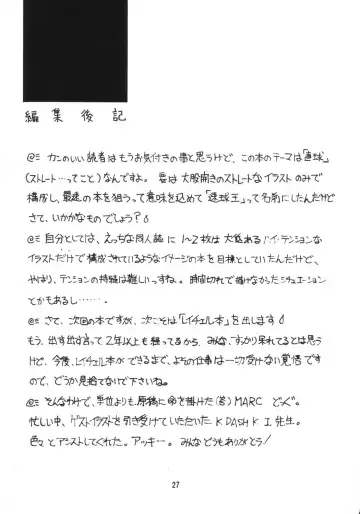 編集後記
@ミ カンのいい読者はもうお気付きの事と思うけど、この本のテーマは「直球」
(ストレート…ってこと)なんですよ。要は大股開きのストレートなイラストのみで
構成し、最速の本を狙うって意味を込めて「速球王」って名前にしたんだけど
さて、いかがなものでしょう?
@ミ 自分としては、えっちな同人誌に1~2枚は大抵あるハイ・テンションな
イラストだけで構成されているようなイメージの本を目標としていたんだけど、
やはり、テンションの持続は難しいっすね。時間切れで描けなかったシチュエーション
とかもあるし……。
@ミ さて、次回の本ですが、次こそは「レイチェル本」を出します
もう、出す出す言って2年以上も経ってるから、みんなすっかり呆れてるとは思う
けど、今後、レイチェル本ができるまで、よその仕事は一切受けない覚悟です
ので、どうか見捨てないで下さいね。
@ミ そんなわけで、学位よりも、原稿に命を掛けた(答)MARC どっぐ。
忙しい中、ゲストイラストを引き受けていただいた K DASH K I 先生。
色々とアシストしてくれた。アッキー。みんなどうもありがとう!
27